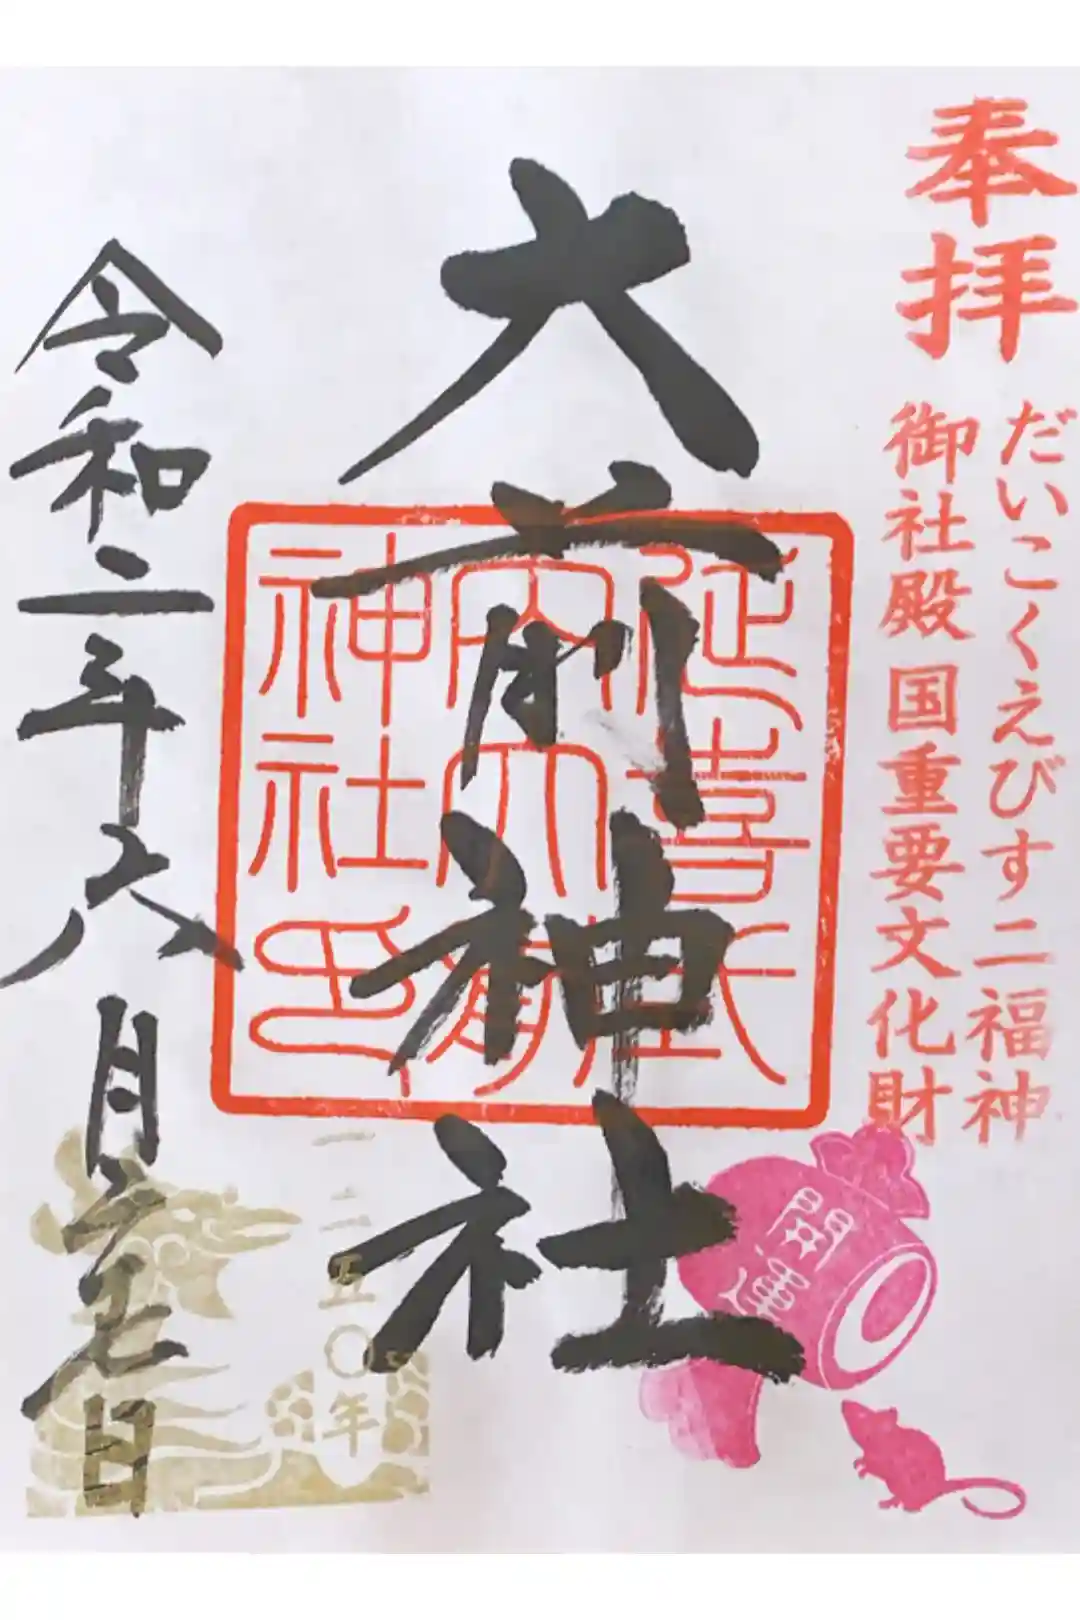 奉拝
だいこくえびす二福神
御社殿国重要文化財
大前神社
延喜式
内大前
神社印
開運
一二五〇年
令和二年八月
日